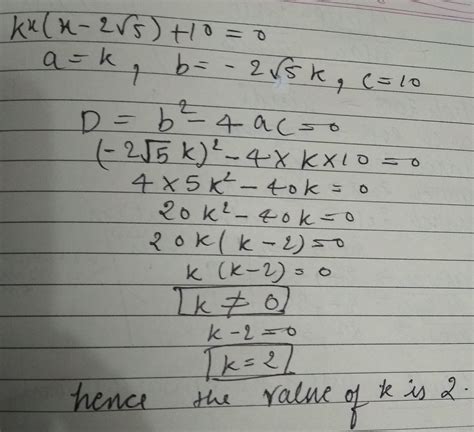 kx(x-2√5)+10=0
a=k, b=-2√5k, c=10
D = b²-4ac=0
(-2√5k)²-4×k×10=0
4×5k²-40k=0
20k²-40k=0
20k(k-2)=0
k(k-2)=0
k≠0
k-2=0
k=2
hence the value of k is 2.